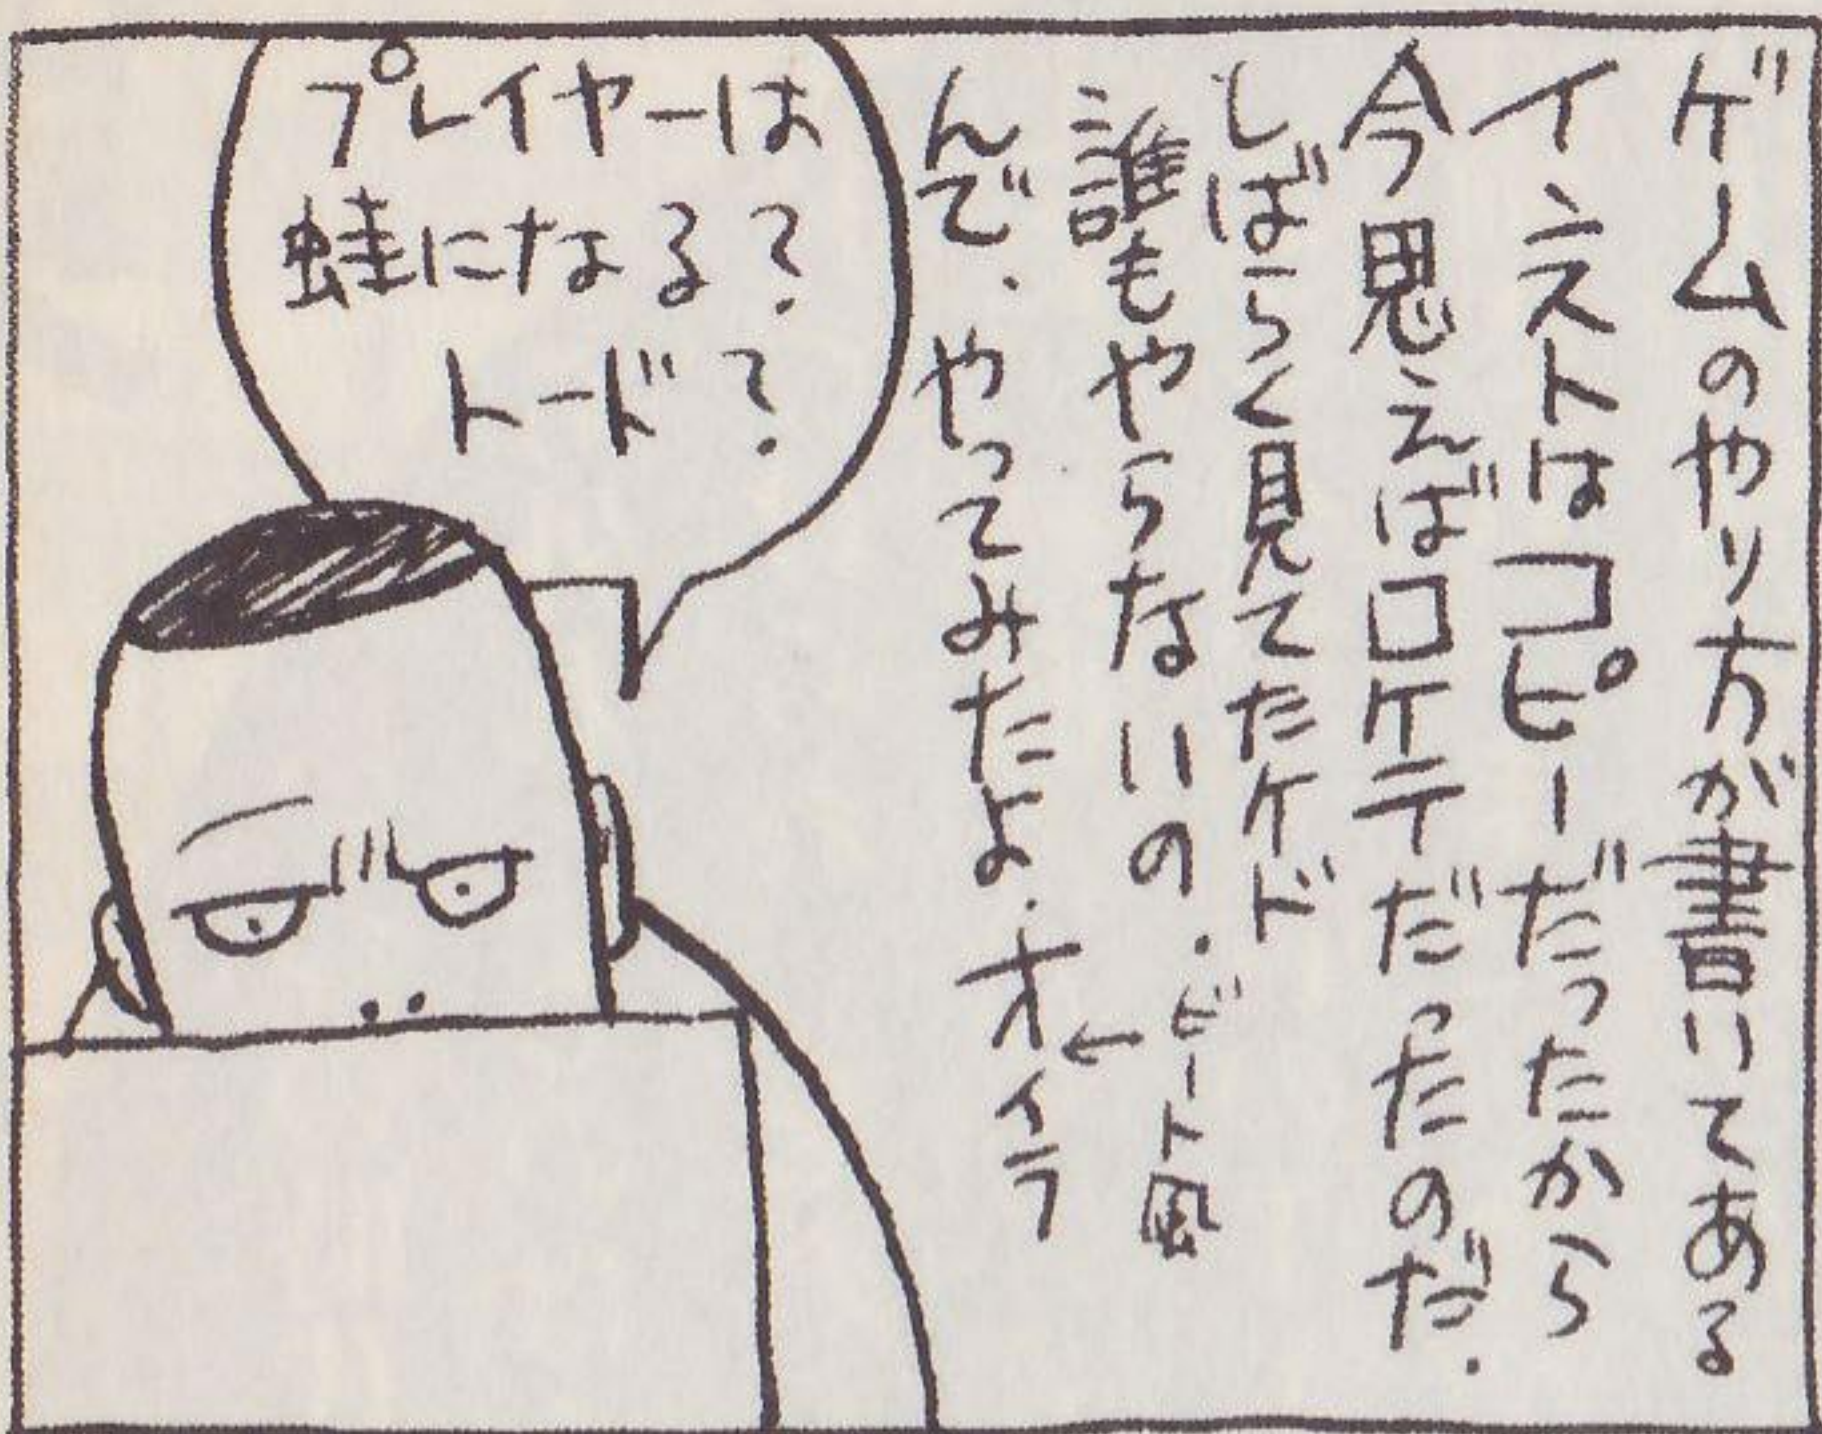 ゲームのやり方が書いてある
インストはコピーだったから
今思えばロケテだったのだ.
しばらく見てたケド
誰もやらないの.
んで、やってみたよ.オイラ
←ビート風
プレイヤーは
蛙になる?
トード?